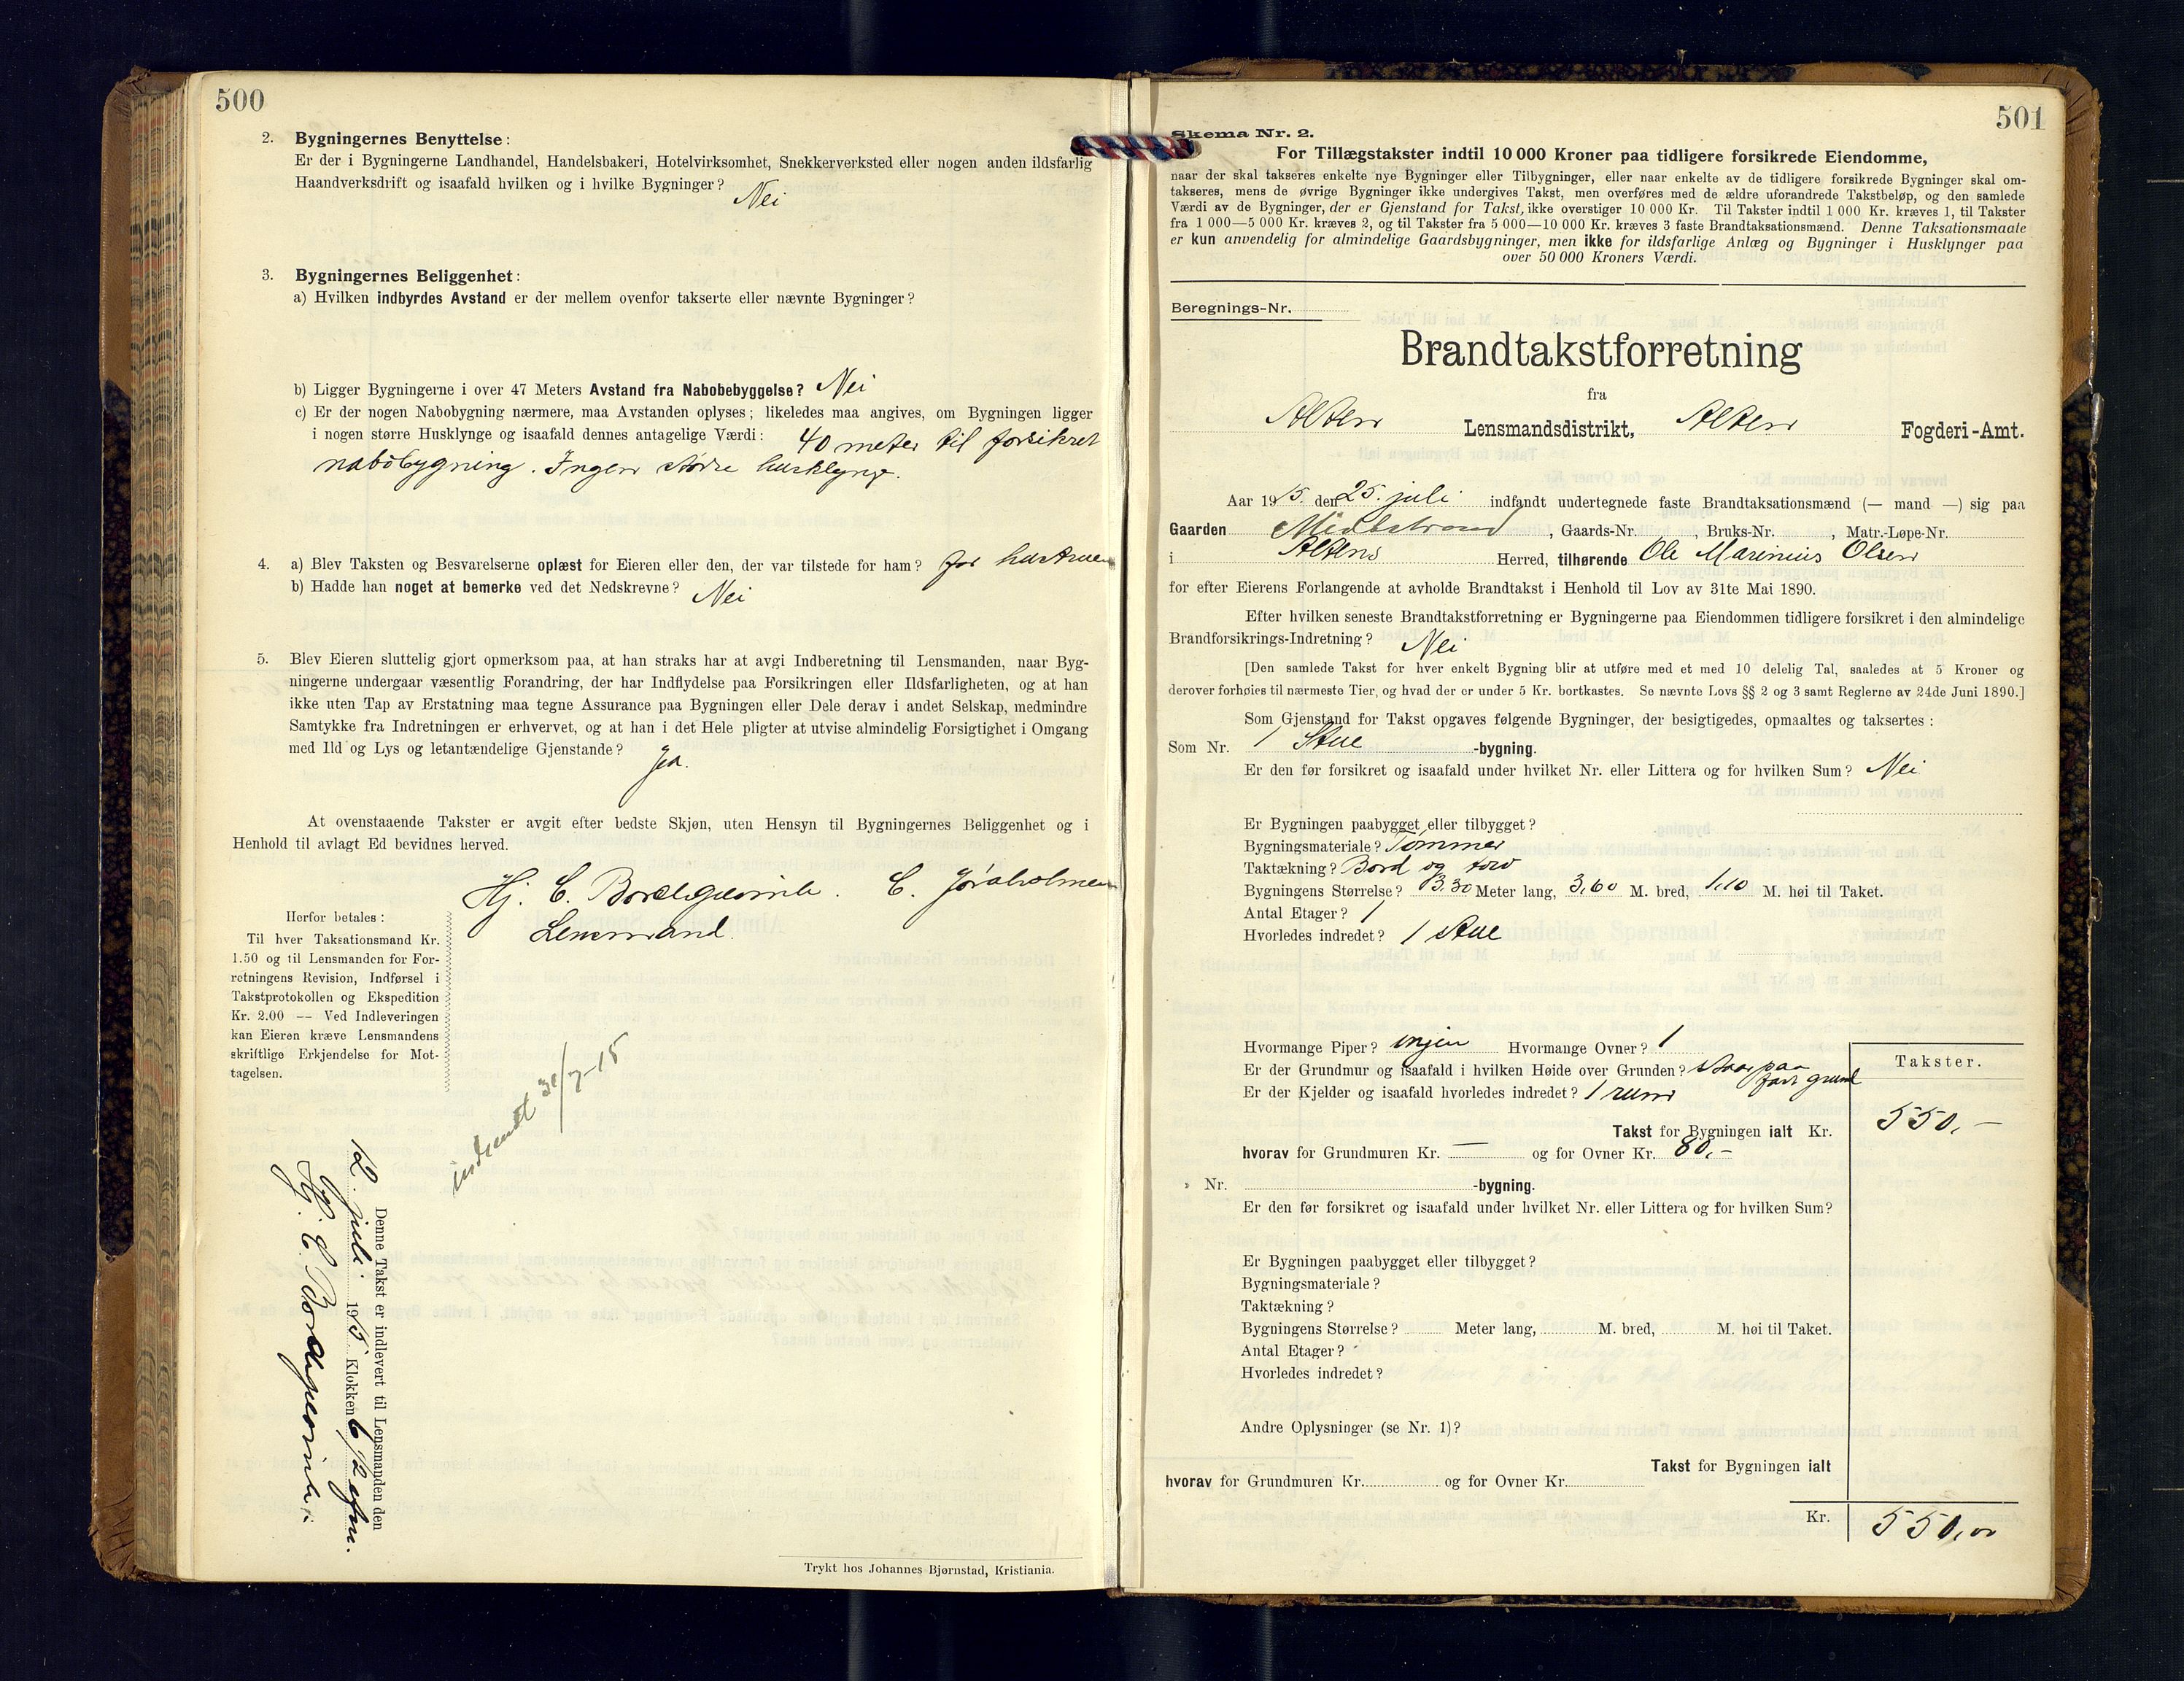 500
2. Bygningernes Benyttelse:
Er der i Bygningerne Landhandel, Handelsbakeri, Hotelvirksomhet, Snekkerverksted eller nogen anden ildsfarlig
Haandverksdrift og isaafald hvilken og i hvilke Bygninger? Nei
3. Bygningernes Beliggenhet:
a) Hvilken indbyrdes Avstand er der mellem ovenfor takserte eller nævnte Bygninger?
b) Ligger Bygningerne i over 47 Meters Avstand fra Nabobebyggelse? Nei
c) Er der nogen Nabobygning nærmere, maa Avstanden oplyses; likeledes maa angives, om Bygningen ligger
i nogen større Husklynge og isaafald dennes antagelige Værdi: 40 meter til forsikret
nabobygning. Ingen større husklynge.
4. a) Blev Taksten og Besvarelserne oplæst for Eieren eller den, der var tilstede for ham? for hustruen
b) Hadde han noget at bemerke ved det Nedskrevne? Nei
5. Blev Eieren sluttelig gjort opmerksom paa, at han straks har at avgi Indberetning til Lensmanden, naar Byg-
ningerne undergaar væsentlig Forandring, der har Indflydelse paa Forsikringen eller Ildsfarligheten, og at han
ikke uten Tap av Erstatning maa tegne Assurance paa Bygningen eller Dele derav i andet Selskap, medmindre
Samtykke fra Indretningen er erhvervet, og at han i det Hele pligter at utvise almindelig Forsigtighet i Omgang
med Ild og Lys og letantændelige Gjenstande? Ja.
At ovenstaaende Takster er avgit efter bedste Skjøn, uten Hensyn til Bygningernes Beliggenhet og i
Henhold til avlagt Ed bevidnes herved.
Hj. C. . C. Jøraholmen
Lensmand.
Herfor betales:
Til hver Taksationsmand Kr.
1.50 og til Lensmanden for For-
retningens Revision, Indførsel i
Takstprotokollen og Ekspedition
Kr. 2.00 — Ved Indleveringen
kan Eieren kræve Lensmandens
skriftlige Erkjendelse for Mot-
tagelsen.
indsendt 31/7-15
Denne Takst er indlevert til Lensmanden den
juli 1915. Klokken 6 1/2 efm.
Hj. C.
Trykt hos Johannes Bjørnstad, Kristiania.
501
Skema Nr. 2.
For Tillægstakster indtil 10 000 Kroner paa tidligere forsikrede Eiendomme,
naar der skal takseres enkelte nye Bygninger eller Tilbygninger, eller naar enkelte av de tidligere forsikrede Bygninger skal om-
takseres, mens de øvrige Bygninger ikke undergives Takst, men overføres med de ældre uforandrede Takstbeløp, og den samlede
Værdi av de Bygninger, der er Gjenstand for Takst, ikke overstiger 10 000 Kr. Til Takster indtil 1 000 Kr. kræves 1, til Takster
fra 1 000—5 000 Kr. kræves 2, og til Takster fra 5 000—10 000 Kr. kræves 3 faste Brandtaksationsmænd. Denne Taksationsmaate
er kun anvendelig for almindelige Gaardsbygninger, men ikke for ildsfarlige Anlæg og Bygninger i Husklynger paa
over 50 000 Kroners Værdi.
Beregnings-Nr.
Brandtakstforretning
fra
Alten Lensmandsdistrikt, Alten Fogderi-Amt.
Aar 1915. den 25. juli indfandt undertegnede faste Brandtaksationsmænd (— mand —) sig paa
Gaarden Midtstrand, Gaards-Nr. , Bruks-Nr. , Matr.-Løpe-Nr.
i Altens Herred, tilhørende Ole Marenius Olsen
for efter Eierens Forlangende at avholde Brandtakst i Henhold til Lov av 31te Mai 1890.
Efter hvilken seneste Brandtakstforretning er Bygningerne paa Eiendommen tidligere forsikret i den almindelige
Brandforsikrings-Indretning? Nei
[Den samlede Takst for hver enkelt Bygning blir at utføre med et med 10 delelig Tal, saaledes at 5 Kroner og
derover forhøies til nærmeste Tier, og hvad der er under 5 Kr. bortkastes. Se nævnte Lovs §§ 2 og 3 samt Reglerne av 24de Juni 1890.]
Som Gjenstand for Takst opgaves følgende Bygninger, der besigtigedes, opmaaltes og taksertes:
Som Nr. 1 Stue -bygning.
Er den før forsikret og isaafald under hvilket Nr. eller Littera og for hvilken Sum? Nei
Er Bygningen paabygget eller tilbygget?
Bygningsmateriale? Tømmer
Taktækning? Bord og torv
Bygningens Størrelse? 3.30 Meter lang, 3,60 M. bred, 1,10 M. høi til Taket.
Antal Etager? 1
Hvorledes indredet? 1 stue
Hvormange Piper? ingen Hvormange Ovner? 1
Takster.
Er der Grundmur og isaafald i hvilken Høide over Grunden? staar paa fast grund
Er der Kjelder og isaafald hvorledes indredet? 1 rum
Takst for Bygningen ialt Kr. 550,-
hvorav for Grundmuren Kr. — og for Ovner Kr. 80,-
» Nr. -bygning.
Er den før forsikret og isaafald under hvilket Nr. eller Littera og for hvilken Sum?
Er Bygningen paabygget eller tilbygget?
Bygningsmateriale?
Taktækning?
Bygningens Størrelse? Meter lang, M. bred, M. høi til Taket.
Antal Etager?
Hvorledes indredet?
Andre Oplysninger (se Nr. 1)?
Takst for Bygningen ialt
hvorav for Grundmuren Kr. og for Ovner Kr.
Kr. 550,00